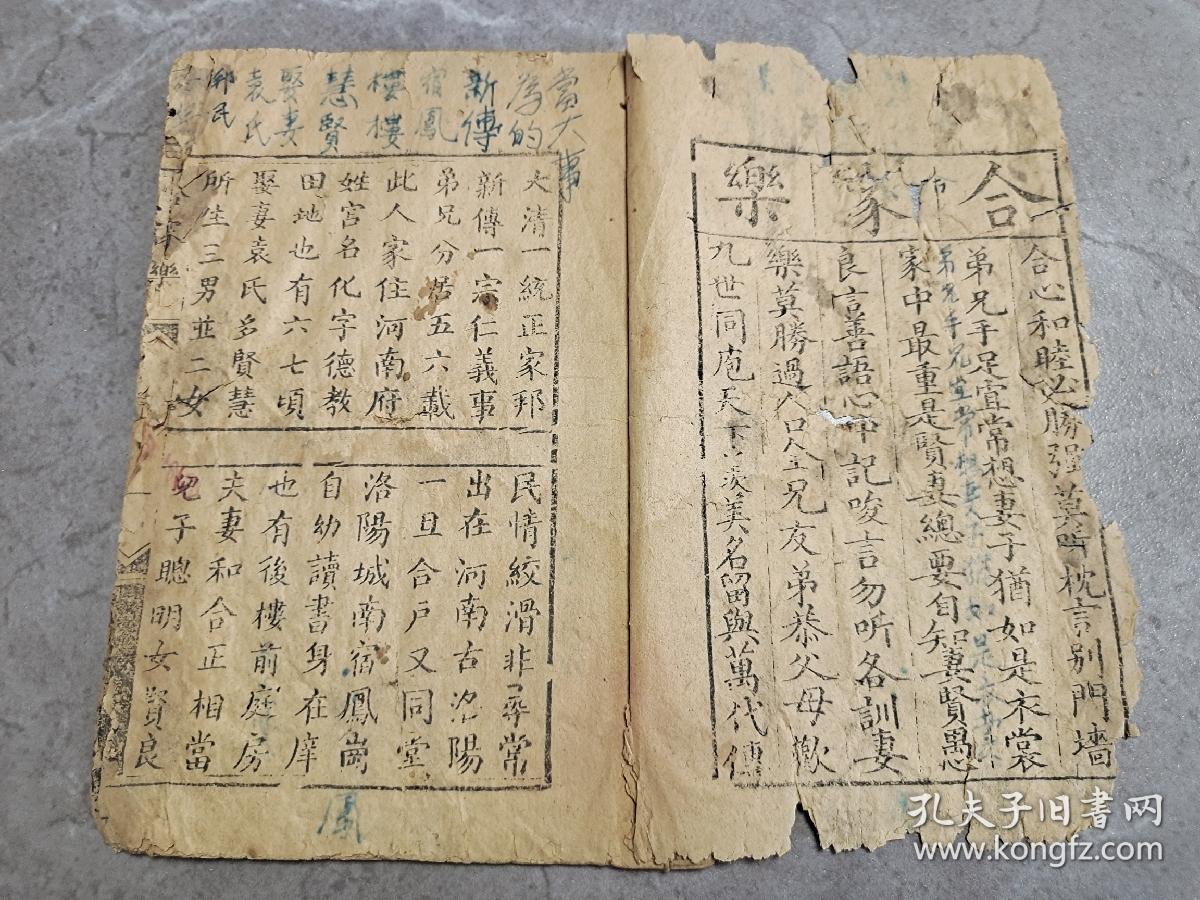 合家樂
合心和睦必勝强莫听枕言别門墻
弟兄手足宜常想妻子猶如是衣裳
家中最重是賢妻總要自知妻賢愚
良言善語心中記唆言勿听各訓妻
樂莫勝過人口全兄友弟恭父母歡
九世同庖天下羨美名留與萬代傳
當大事
為的
新傳
宿鳳
樓樓
慧賢
娶妻
袁氏
邦民
大清一統正家邦
新傳一宗仁義事
弟兄分居五六載
此人家住河南府
姓宫名化字德教
田地也有六七頃
娶妻袁氏多賢慧
所生三男並二女
民情絞滑非尋常
出在河南古洛陽
一旦合戶又同堂
洛陽城南宿鳳崗
自幼讀書身在庠
也有後樓前庭房
夫妻和合正相當
兒子聰明女賢良
樂
鳳
孔夫子旧书网
www.kongfz.com